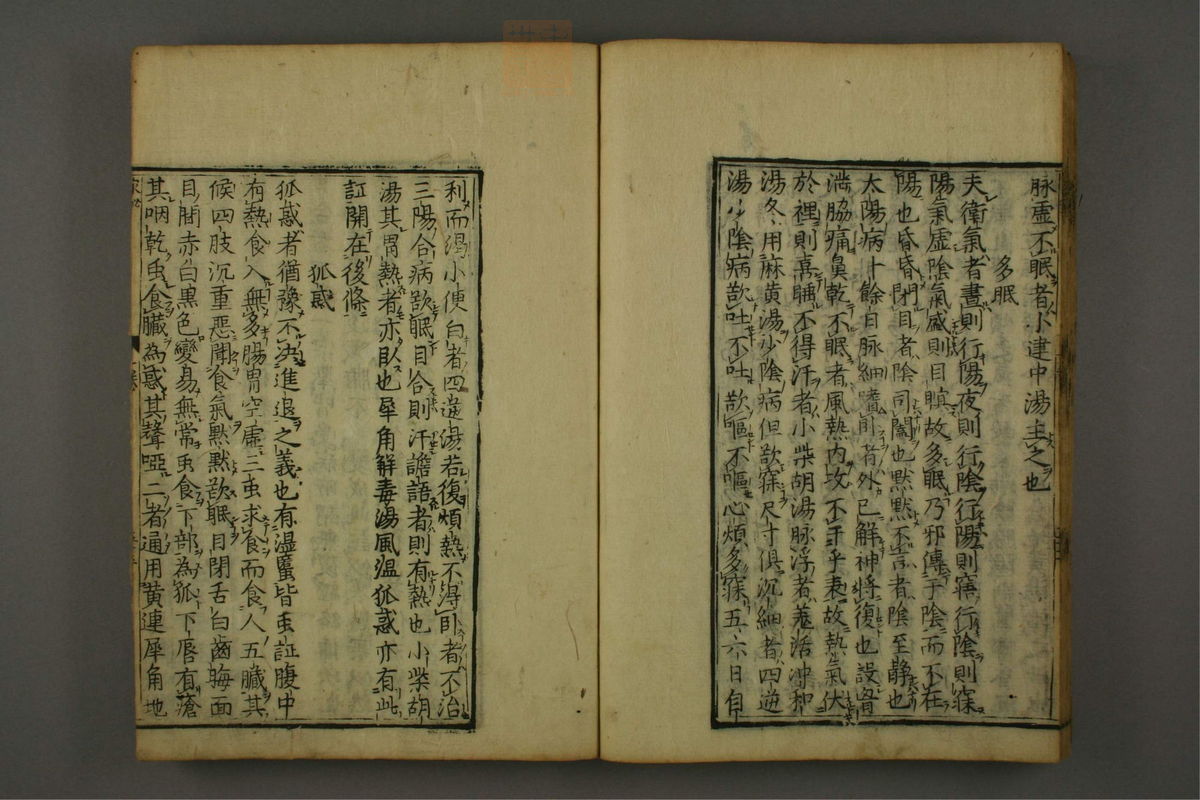 脉虚不眠者小建中湯主之也
多眠
夫衛氣者晝則行陽夜則行陰行陽則寤行陰則寐
陽氣虚陰氣盛則目瞑故多眠乃邪傳于陰而不在
陽也昏昏閉目者陰司闔也黙黙不言者陰至静也
太陽病十餘日脉細嗜卧者外已解神將復也設胷
滿脇痛鼻乾不眠者風熱内攻不干乎表故熱氣伏
於裡則髙睡不得汗者小柴胡湯脉浮者羗活冲和
湯冬用麻黄湯少陰病但欲寐尺寸俱沉細者四逆
湯少陰病欲吐不吐欲嘔不嘔心煩多寐五六日自
利而渇小便白者四逆湯若復煩熱不得卧者不治
三陽合病欲眠目合則汗譫語者則有熱也小柴胡
湯其胃熱者亦卧也犀角解毒湯風温狐惑亦有此
証開在後條
狐惑
狐惑者猶豫不决進退之義也有温䘌皆虫証腹中
有熱食入無多腸胃空虚三虫求食而食人五臓其
候四肢沉重惡聞食氣黙黙欲眠目閉舌白齒晦面
目間赤白黒色變易無常虫食下部為狐下唇有瘡
其咽乾虫食臓為惑其聲啞二者通用黄連犀角地